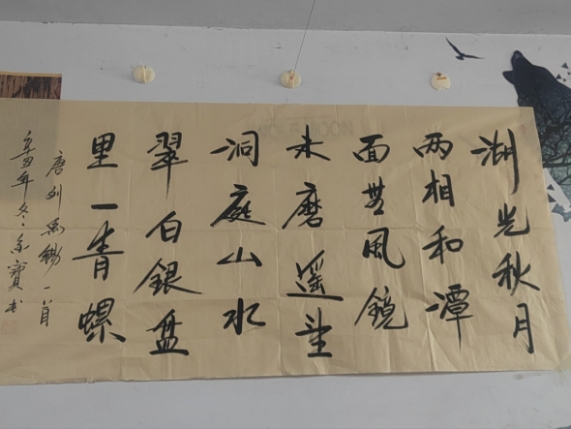 湖光秋月
两相和潭
面無风镜
未磨遥望
洞庭山水
翠白银盘
里一青螺
唐刘禹锡一首
辛丑年冬